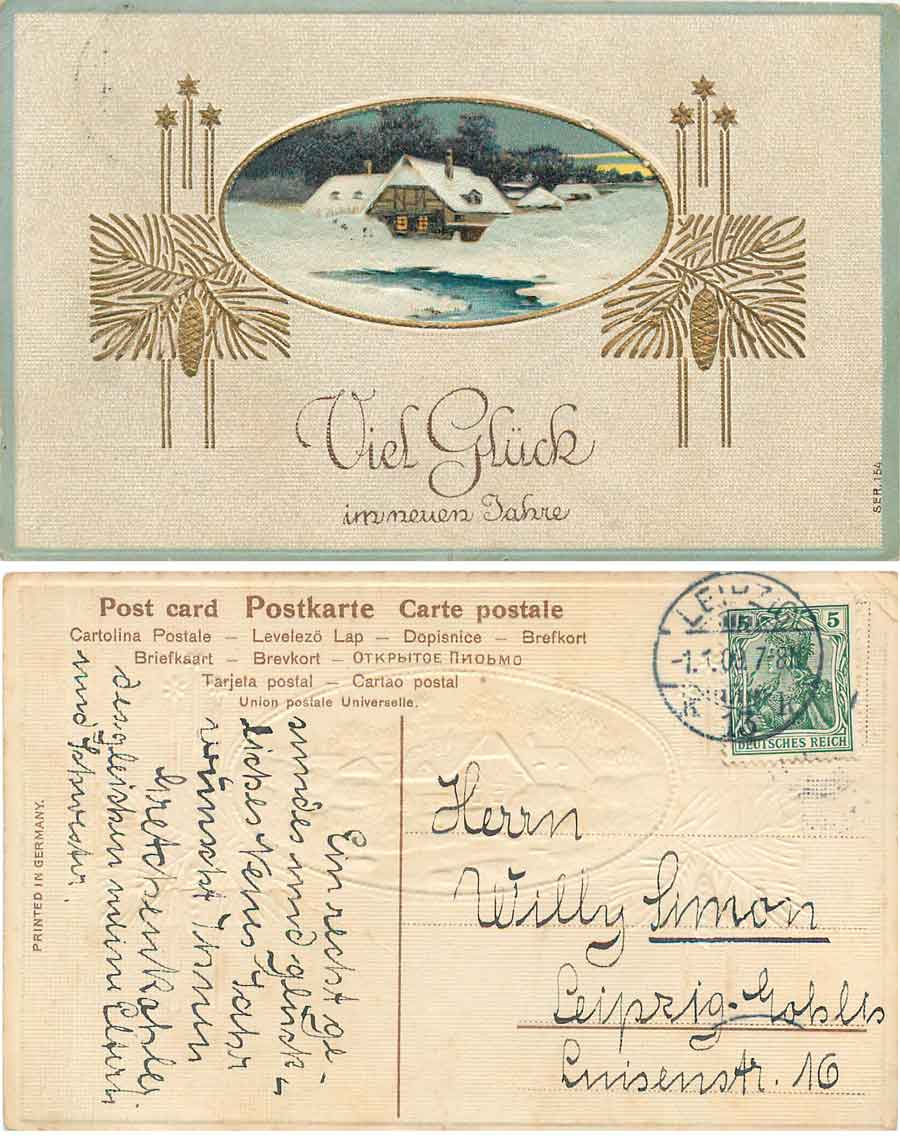 Viel Glück
im neuen Jahre
SER. 154
Post card Postkarte Carte postale
Cartolina Postale – Levelező Lap – Dopisnice – Brefkort
Briefkaart – Brevkort – ОТКРЫТОЕ ПИСЬМО
Tarjeta postal – Cartao postal
Union postale Universelle.
PRINTED IN GERMANY.
LEIPZIG
-1.1.09. 7-8N
5
DEUTSCHES REICH
Herrn
Willy Simon
Leipzig-Gohlis
Luisenstr. 16
Ein recht ge-
sundes und glück-
liches Neues Jahr
wünscht Ihnen
Gretchen Kahler.
desgleichen meine Eltern
und Schwester.